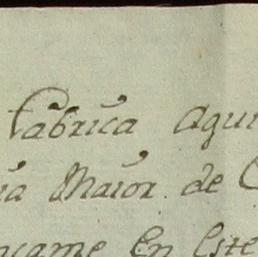 fabrica agui
ia Maior de C
ncame En este